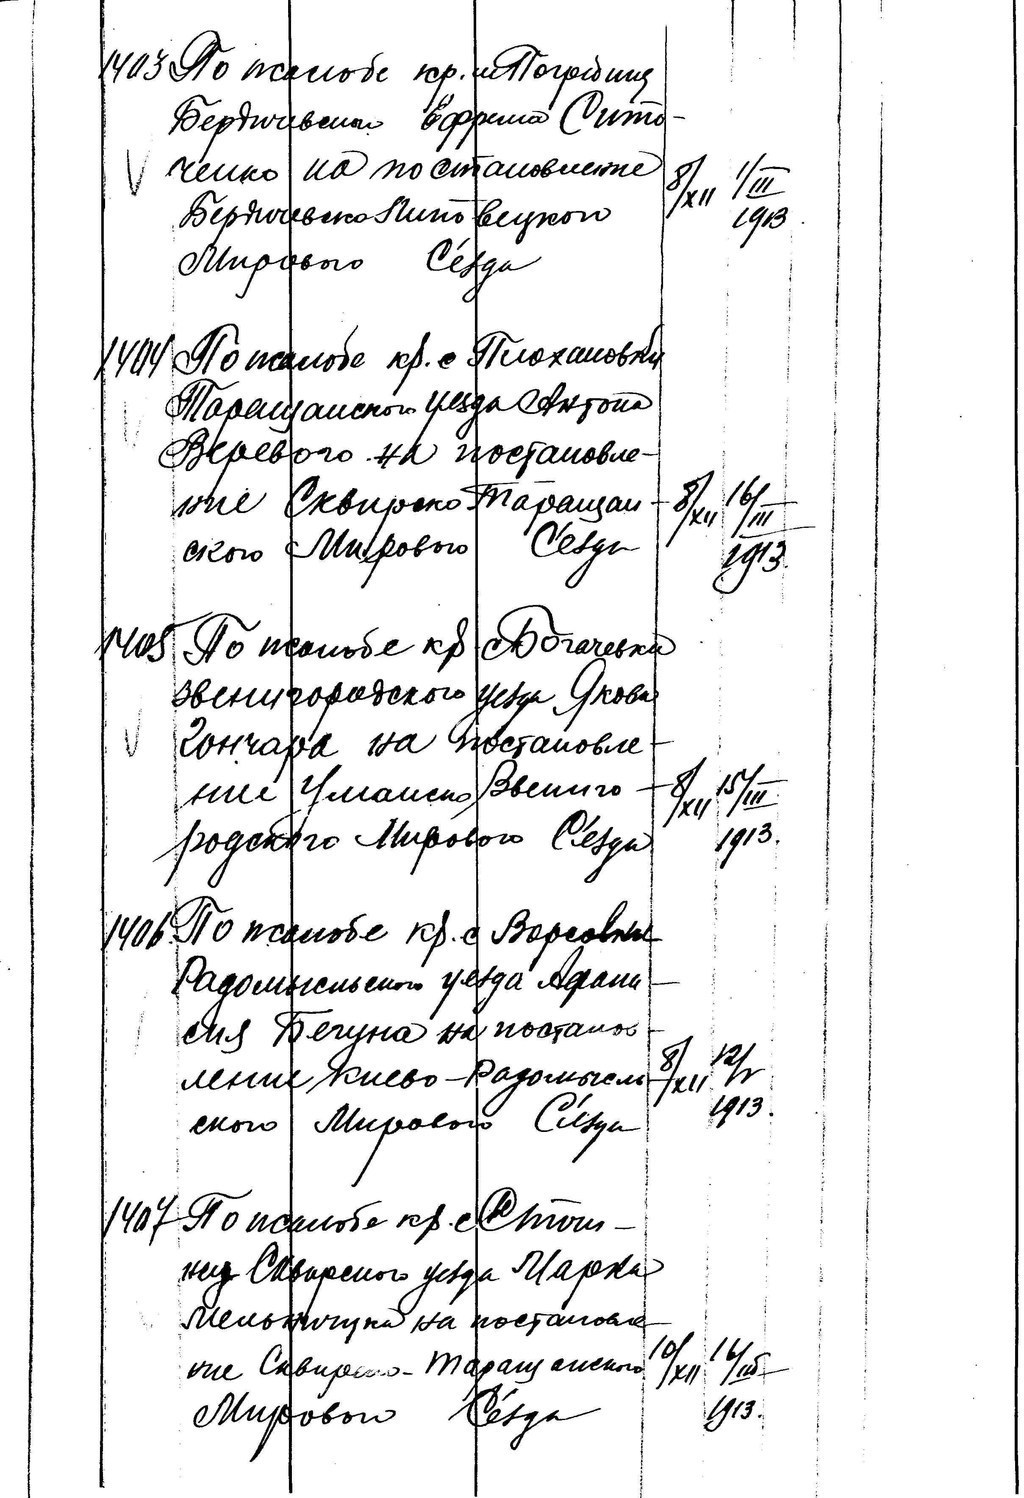 1403 По жалобе кр. м Погребищ
Бердичевскаго Ефрема Сито-
ченко на постановление
8/XII 1/III
Бердичевско Липовецкого
1913
Мирового Съезда
1404 По жалобе кр. с Плохановки
Таращанского уезда Антона
Веревого на постановле-
ние Сквирско Таращан-
8/XII 16/III
ского Мирового Съезда
1913.
1405 По жалобе кр с Богачевки
звенигородского уезда Якова
Гончара на постановле-
ние Уманско Звениго-
8/XII 15/III
родского Мирового Съезда
1913.
1406. По жалобе кр. с Ворсовки
Радомысльского уезда Афана-
сия Бегуна на постанов-
ление Киево-Радомысль-
8/XII 12/V
ского Мирового Съезда
1913.
1407 По жалобе кр. с
Сквирского уезда Марка
Мельничука на постановле-
ние Сквирско-Таращанского
10/XII 16/III
Мирового Съезда
1913.